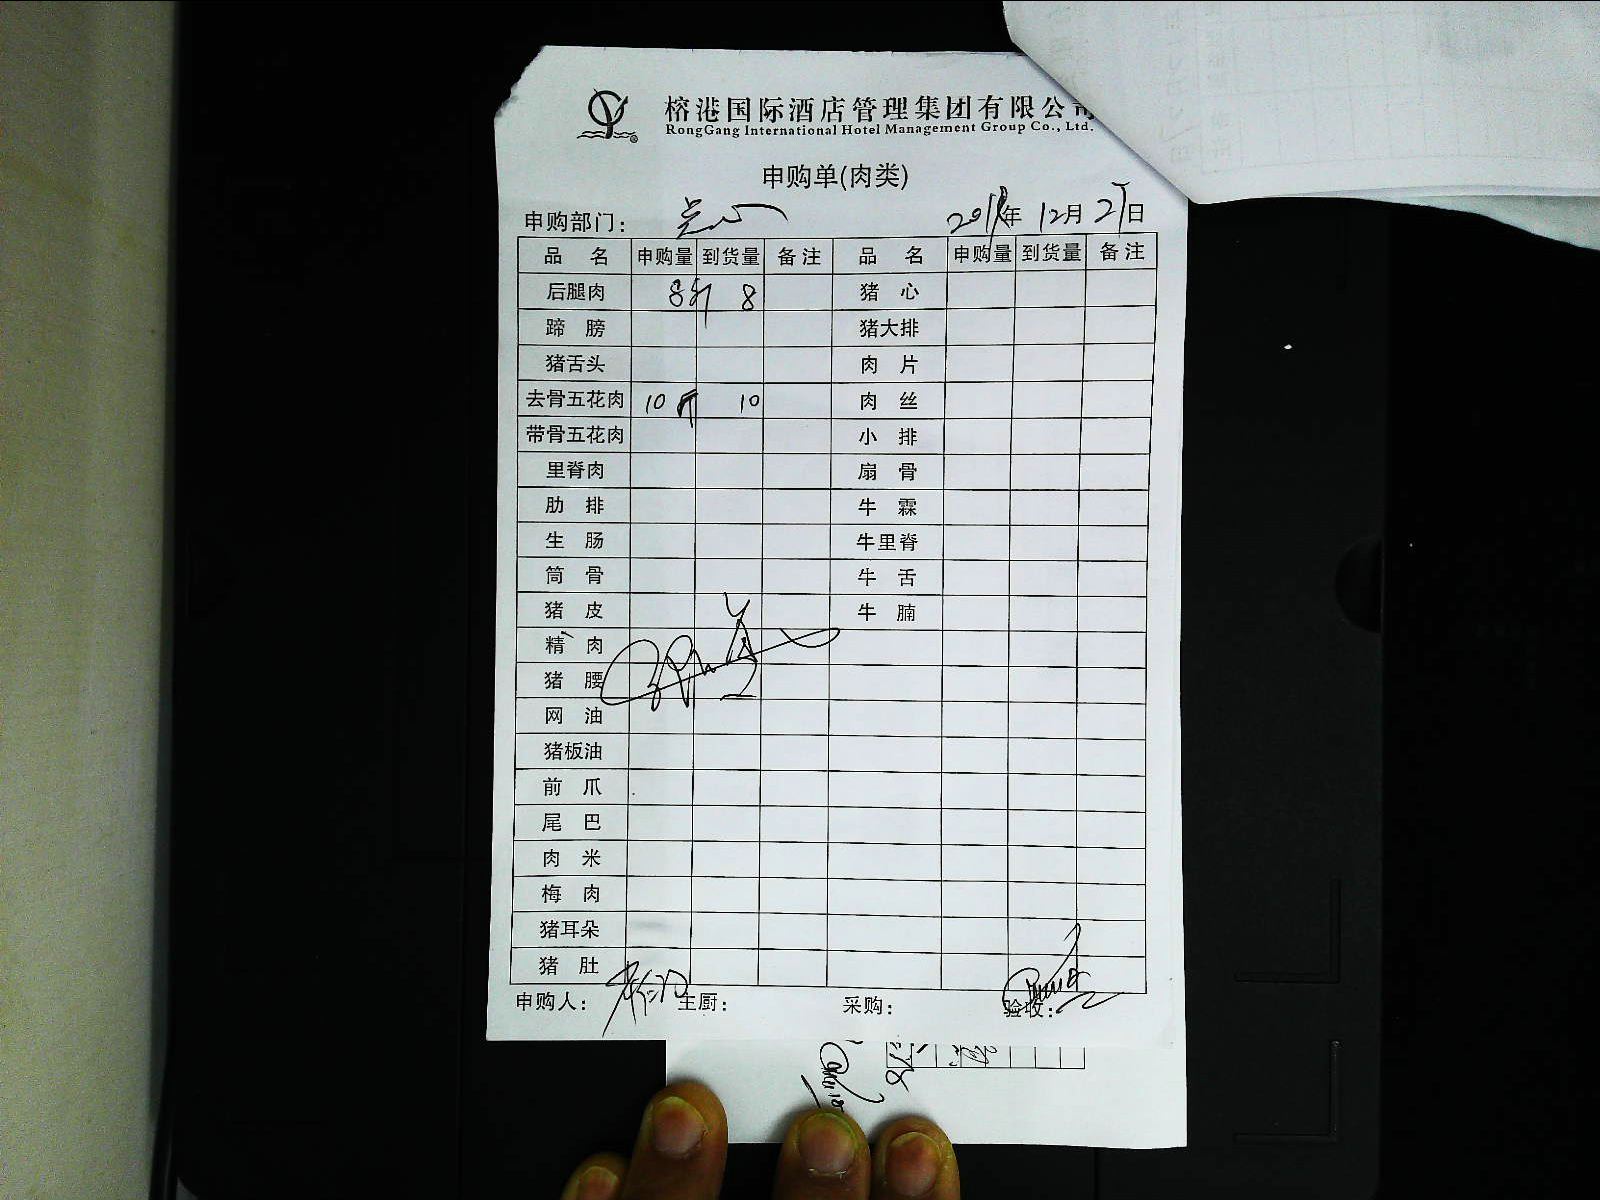 榕港国际酒店管理集团有限公司
RongGang International Hotel Management Group Co., Ltd.
申购单(肉类)
申购部门: 点心 年 12月 日
品 名 申购量 到货量 备注 品 名 申购量 到货量 备注
后腿肉 8斤 8 猪 心
蹄 膀 猪大排
猪舌头 肉 片
去骨五花肉 10斤 10 肉 丝
带骨五花肉 小 排
里脊肉 扇 骨
肋 排 牛 霖
生 肠 牛里脊
筒 骨 牛 舌
猪 皮 牛 腩
精 肉
猪 腰
网 油
猪板油
前 爪
尾 巴
肉 米
梅 肉
猪耳朵
猪 肚
申购人: 主厨: 采购: 验收: